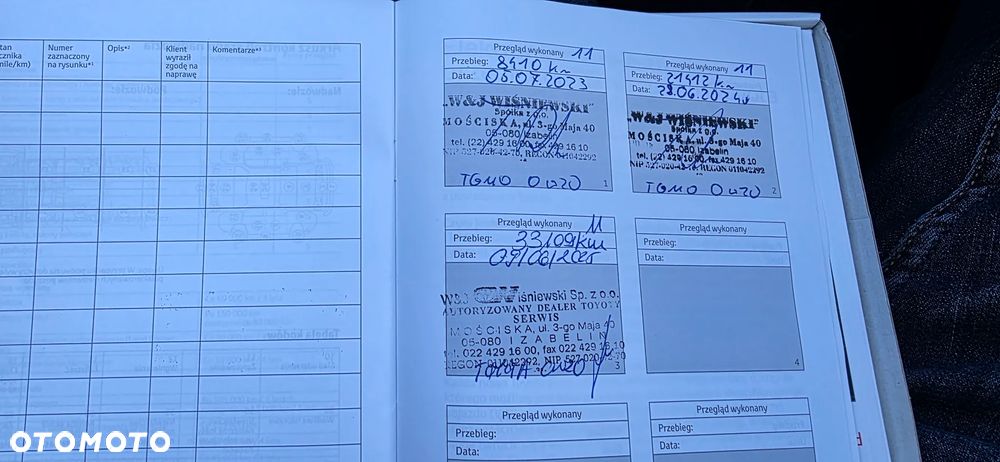 tan
cznika
mile/km)
Numer
zaznaczony
na rysunku*¹
Opis*²
Klient
wyraził
zgodę na
naprawę
Komentarze*³
Przegląd wykonany 11
Przebieg: 8410 km
Data: 05.07.2023
„W&J WIŚNIEWSKI"
Spółka z o.o.
MOŚCISKA, ul. 3-go Maja 40
05-080 Izabelin
tel. (22) 429 16 00, fax 429 16 10
NIP 527-020-42-70, REGON 011042292
TGMO 0W20
1
Przegląd wykonany 11
Przebieg: 21412 km
Data: 28.06.2024
„W&J WIŚNIEWSKI"
Spółka z o.o.
MOŚCISKA, ul. 3-go Maja 40
05-080 Izabelin
tel. (22) 429 16 00, fax 429 16 10
REGON 011042292
TGMO 0W20
2
Przegląd wykonany 11
Przebieg: 33109 km
Data: 09/06/2025
W&J Wiśniewski Sp. z o.o.
AUTORYZOWANY DEALER TOYOTY
SERWIS
MOŚCISKA, ul. 3-go Maja 40
05-080 IZABELIN
tel. 022 429 16 00, fax 022 429 16 10
REGON 011042292, NIP 527-020-42-70
0W20
3
Przegląd wykonany
Przebieg:
Data:
4
Przegląd wykonany
Przebieg:
Data:
Przegląd wykonany
Przebieg:
Data:
OTOMOTO